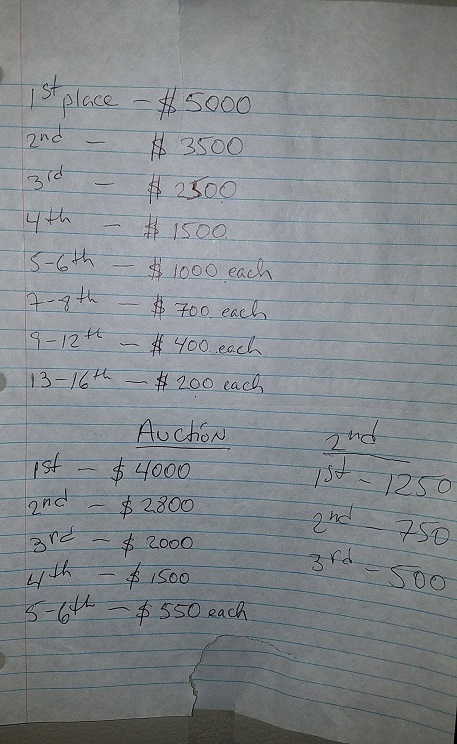 1st place - $ 5000
2nd - $ 3500
3rd - $ 2500
4th - $ 1500
5-6th - $ 1000 each
7-8th - $ 700 each
9-12th - $ 400 each
13-16th - $ 200 each
Auction
1st - $ 4000
2nd - $ 2800
3rd - $ 2000
4th - $ 1500
5-6th - $ 550 each
2nd
1st - 1250
2nd - 750
3rd - 500